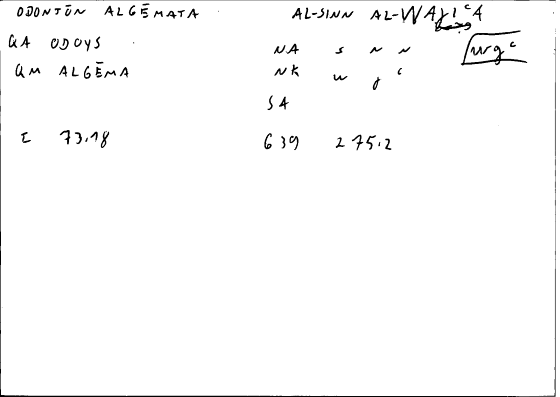 ODONTŌN ALGĒMATA AL-SINN AL-WAJIʿA
GA ODOYS NA s n n √wgʿ
GM ALGĒMA NK w j ʿ
SA
E 73.18 639 275.2